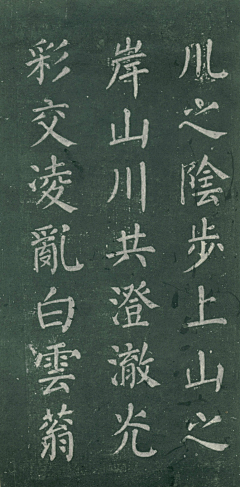 之陰步上山之
岸山川共澄澈光
彩交凌亂白雲蓊